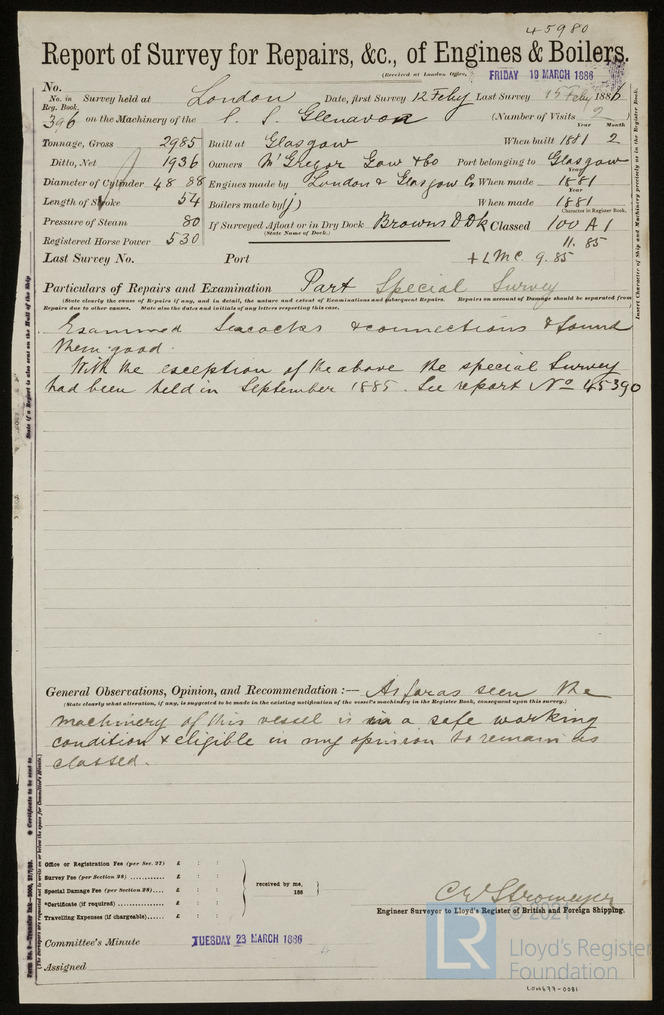 45980
Report of Survey for Repairs, &c., of Engines & Boilers.
(Received at London Office, FRIDAY 19 MARCH 1886
No.
No. in Reg. Book. Survey held at London Date, first Survey 12 Feby Last Survey 15 Feby 1886
396 on the Machinery of the S. S. Glenavon (Number of Visits 2)
Year Month
Tonnage, Gross 2985 Built at Glasgow When built 1881 2
Ditto, Net 1936 Owners McGregor Gow & Co Port belonging to Glasgow
Year
Diameter of Cylinder 48 88 Engines made by London & Glasgow Co When made 1881
Year
Length of Stroke 54 Boilers made by (") When made 1881
Character in Register Book.
Pressure of Steam 80 If Surveyed Afloat or in Dry Dock Browns D Dk Classed 100 A 1
(State Name of Dock.)
Registered Horse Power 530 11. 85
Last Survey No. Port + LMC 9. 85
Particulars of Repairs and Examination Part Special Survey
(State clearly the cause of Repairs if any, and in detail, the nature and extent of Examinations and subsequent Repairs. Repairs on account of Damage should be separated from
Repairs due to other causes. State also the dates and initials of any letters respecting this case.
Examined Seacocks & connections & found
them good.
With the exception of the above the special Survey
had been held in September 1885. See report No 45390
General Observations, Opinion, and Recommendation :— As far as seen the
(State clearly what alteration, if any, is suggested to be made in the existing notification of the vessel's machinery in the Register Book, consequent upon this survey.)
machinery of this vessel is in a safe working
condition & eligible in my opinion to remain as
classed.
Office or Registration Fee (per Sec. 27) £ : :
Survey Fee (per Section 28) ............ £ : :
Special Damage Fee (per Section 28).... £ : :
*Certificate (if required) ............ £ : :
Travelling Expenses (if chargeable)...... £ : :
received by me,
188
C E Stromeyer
Engineer Surveyor to Lloyd's Register of British and Foreign Shipping.
Committee's Minute TUESDAY 23 MARCH 1886
Assigned
State if a Report is also sent on the Hull of the Ship
Insert Character of Ship and Machinery precisely as in the Register Book.
* Certificate to be sent to
(The Surveyors are requested not to write on or below the space for Committee's Minute.)
© 2021
LR
Lloyd's Register
Foundation
LON677-0081